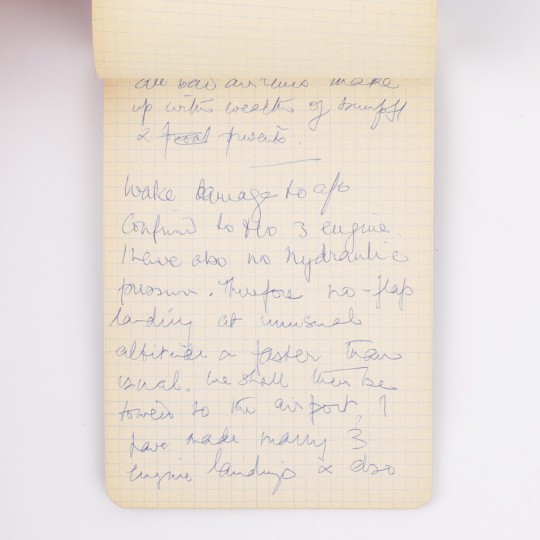 up with wealth of
& presents.
damage to a/c
Confined to No 3 engine.
I have also no hydraulic
pressure. Therefore no-flap
landing at unusual
altitude & faster than
usual. We shall then be
towed to the airport. I
have made many 3
engine landings & also